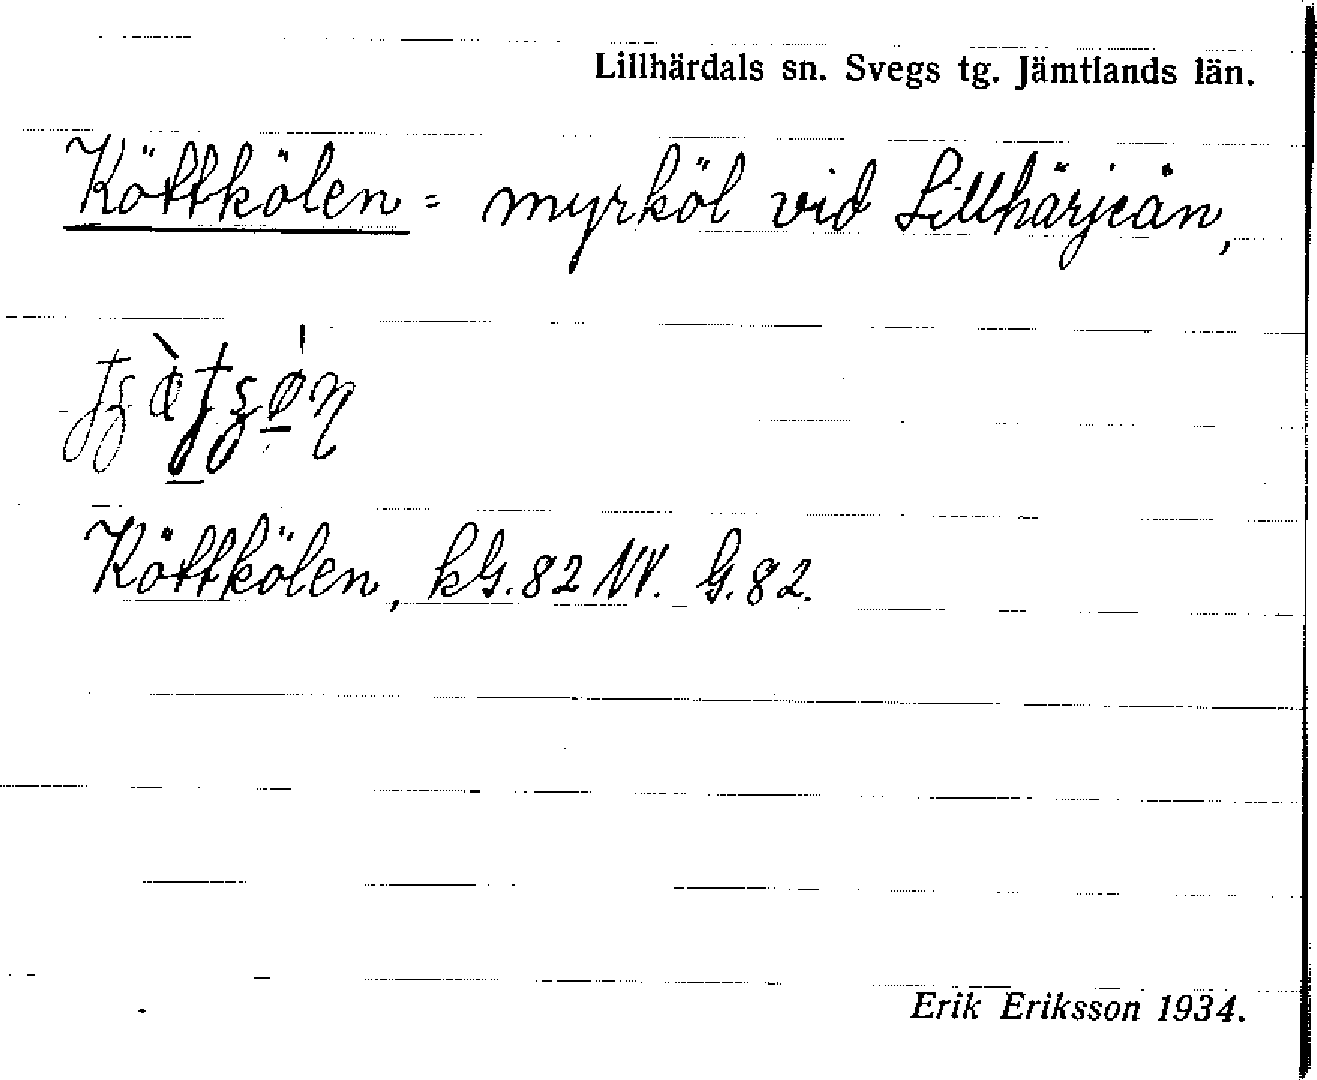 Lillhärdals sn. Svegs tg. Jämtlands län.
Köttkölen = myrköl vid Lillhärjeån,
Köttkölen, kG. 82 NV. G. 82.
Erik Eriksson 1934.